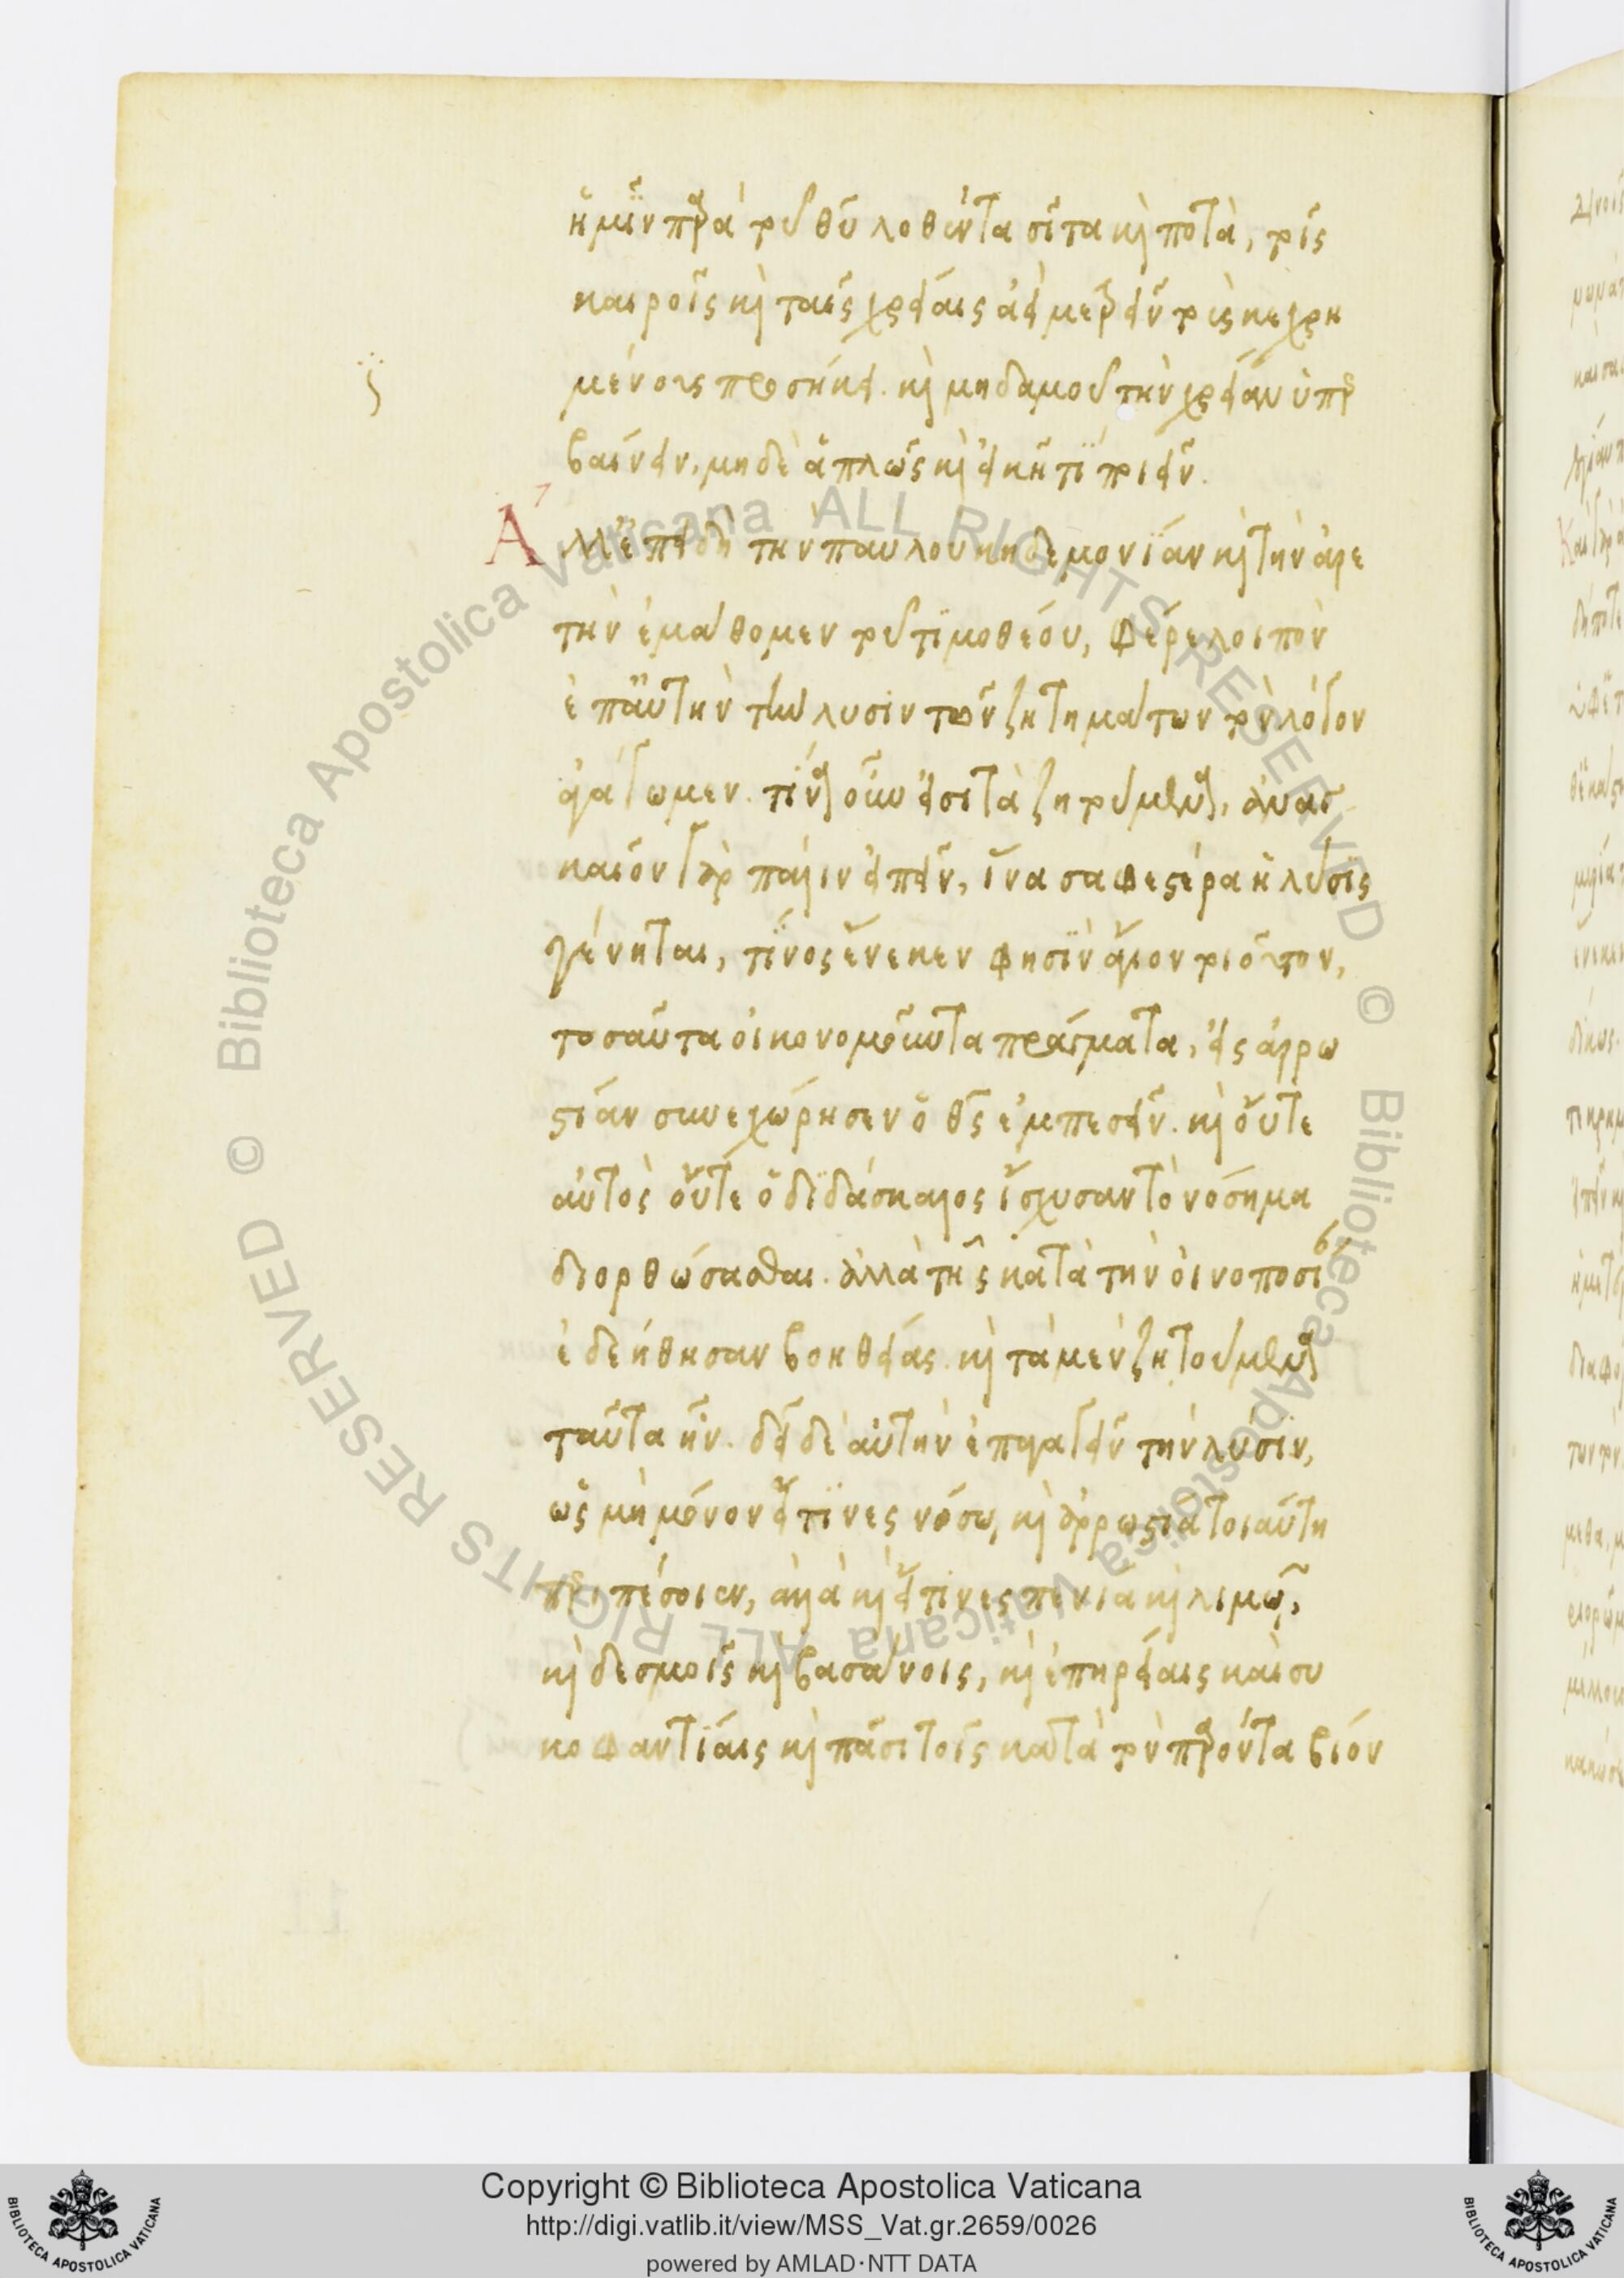 ἡμῖν παρὰ τοῦ θυ δοθέντα σῖτα καὶ ποτὰ, τοῖς
καιροῖς καὶ ταῖς χρείαις ἀεὶ μερεῖν τοῖς κεχρη
μένοις προσήκει. καὶ μηδαμοῦ τὴν χρείαν ὑπερ
βαίνειν, μηδὲ ἁπλῶς καὶ εἰκῆ τὶ ποιεῖν.
Ἀλλ' ἐπειδὴ τὴν παύλου κηδεμονίαν καὶ τὴν ἀρε
τὴν ἐμάθομεν τοῦ τιμοθέου, φέρε λοιπὸν
ἐπ' αὐτὴν τὴν λύσιν τῶν ζητημάτων τὸν λόγον
ἀγάγωμεν. τίνα οὖν εἰσι τὰ ζητούμενα, ἀναγ
καῖον γὰρ πάλιν εἰπεῖν, ἵνα σαφεστέρα ἡ λύσις
γένηται, τίνος ἕνεκεν φησὶν ἅγιον τοιοῦτον,
τοσαῦτα οἰκονομοῦντα πράγματα, εἰς ἀρρω
στίαν συνεχώρησεν ὁ θς ἐμπεσεῖν. καὶ οὔτε
αὐτὸς οὔτε ὁ διδάσκαλος ἴσχυσαν τὸ νόσημα
διορθώσασθαι. ἀλλὰ τῆς κατὰ τὴν οἰνοποσί
ἐδεήθησαν βοηθείας. καὶ τὰ μὲν ζητούμενα
ταῦτα ἦν. δεῖ δὲ αὐτὴν ἐπαγαγεῖν τὴν λύσιν,
ὡς μὴ μόνον εἴ τινες νόσω, καὶ ἀρρωστία τοιαύτη
περιπέσοιεν, ἀλλὰ καὶ εἴ τινες πενία καὶ λιμῶ,
καὶ δεσμοῖς καὶ βασάνοις, καὶ ἐπηρείαις καὶ συ
κοφαντίαις καὶ πᾶσι τοῖς κατὰ τὸν παρόντα βίον
Copyright © Biblioteca Apostolica Vaticana
http://digi.vatlib.it/view/MSS_Vat.gr.2659/0026
powered by AMLAD·NTT DATA
BIBLIOTECA APOSTOLICA VATICANA
BIBLIOTECA APOSTOLICA VATICANA
© Biblioteca Apostolica Vaticana ALL RIGHTS RESERVED
© Biblioteca Apostolica Vaticana ALL RIGHTS RESERVED